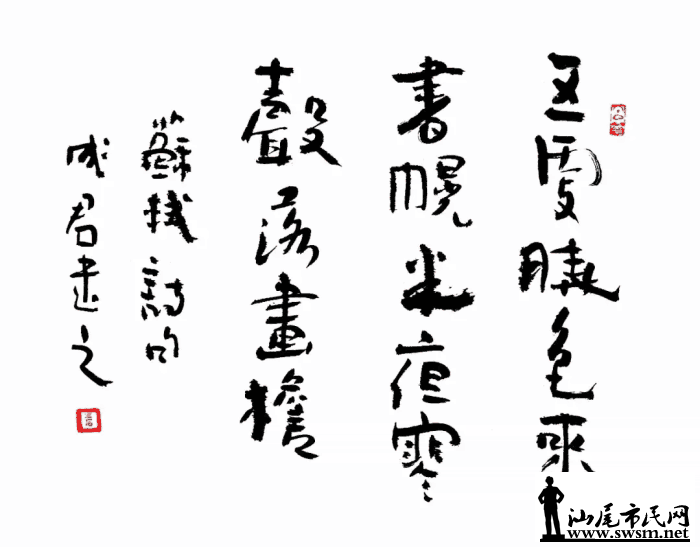 五更曉色來
書幌半夜寒
聲落畫檐
蘇軾詩句
成君書之
汕尾市民网
www.swsm.net